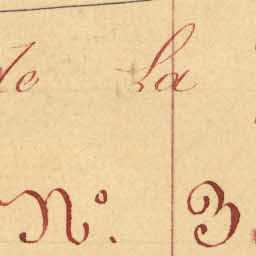 de La
Nº. 3